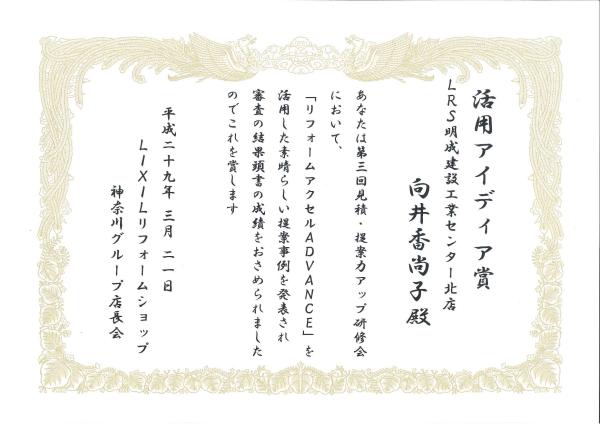 活用アイディア賞
LRS明成建設工業センター北店
向井香尚子殿
あなたは第三回見積・提案力アップ研修会
において、
「リフォームアクセルADVANCE」を
活用した素晴らしい提案事例を発表され
審査の結果頭書の成績をおさめられました
のでこれを賞します
平成二十九年 三月 二一日
LIXILリフォームショップ
神奈川グループ店長会